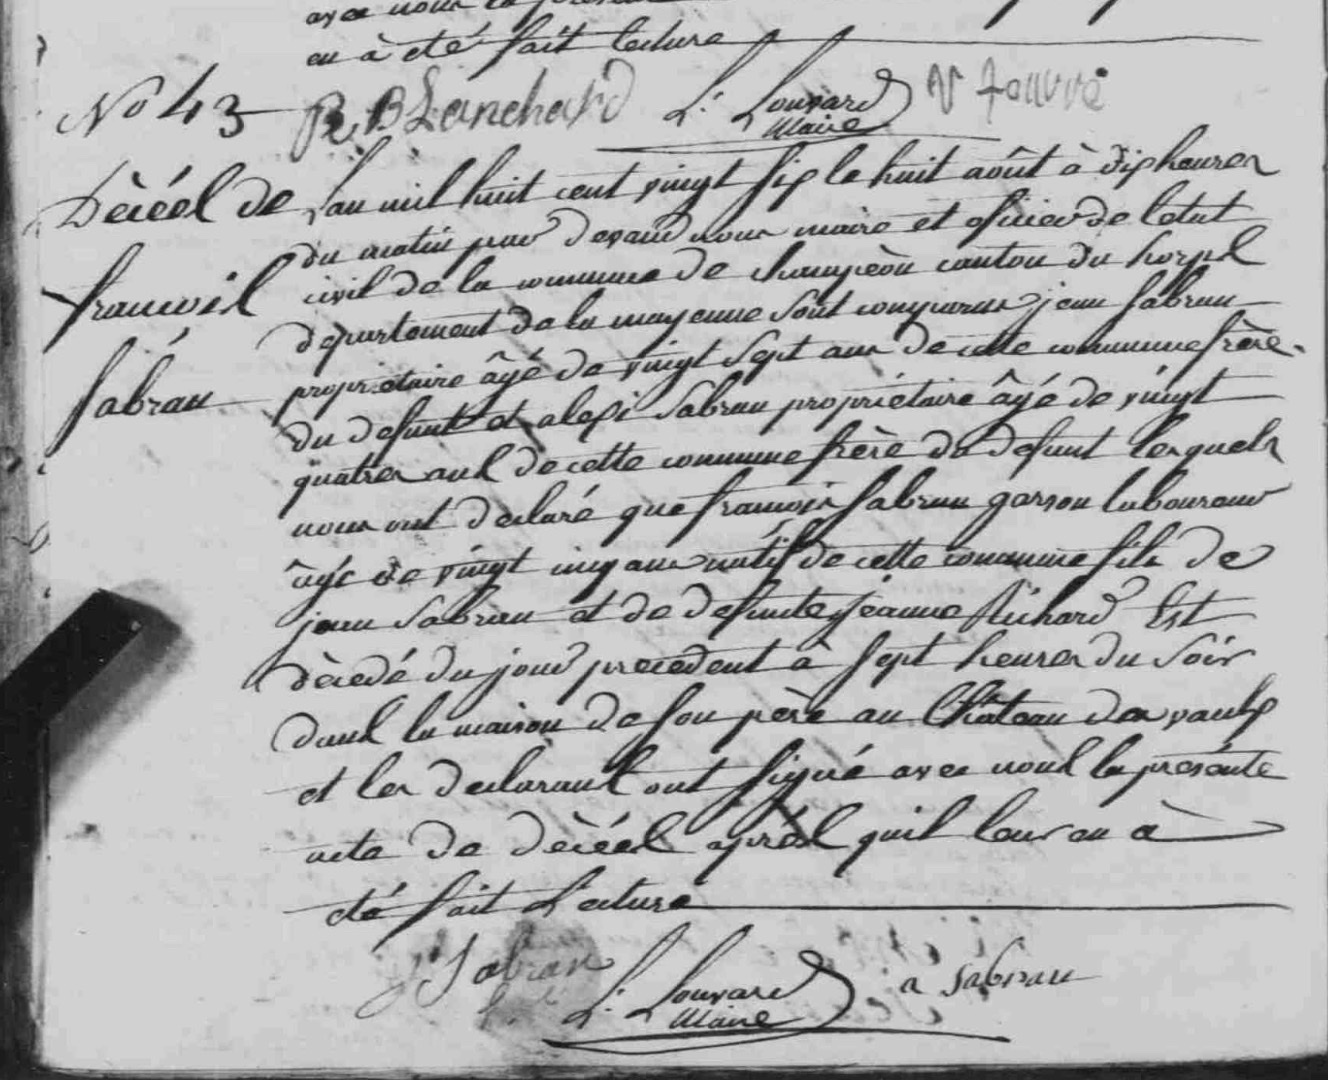 avec nous la
en à été fait lecture
R. Blanchard L. Louvard Maire V Jouvve
No 43
Dècéel de
francoiel
Sabran
Lan mil huit cent vingt six le huit août à dix heurer
du matin par devand nour maire et oficier de letat
civil de la commune de champéon canton du horps
departement de la mayenne sont comparur jean Sabran
proprietaire âgé de vingt Sept anr de cette commune frère
du defunt et alexi Sabran propriétaire âgé de vingt
quatrer anl de cette commune frère du defunt lerquelr
nour ont declaré que francoir Sabran garson laboureur
âgé de vingt cinq anr natif de cette commune filr de
jean Sabran et de defunte jeanne Richard Est
dècedé du jour precedent à Sept heurer du Soir
danl la maison de Son père au Château der vaulx
et ler declaranl ont Signé avec noul la présente
acte de dècéel aprél quil leur en à
été fait Lecture
J Sabran L. Louvard Maire a Sabran